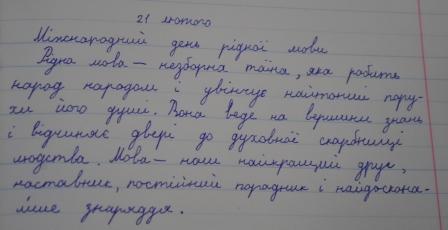 21 лютого
Міжнародний день рідної мови
Рідна мова — незборна таїна, яка робить
народ народом і увінчує найтонші пору-
хи його душі. Вона веде на вершини знань
і відчиняє двері до духовної скарбниці
людства. Мова — наш найкращий друг,
наставник, постійний порадник і найдоскона-
ліше знаряддя.